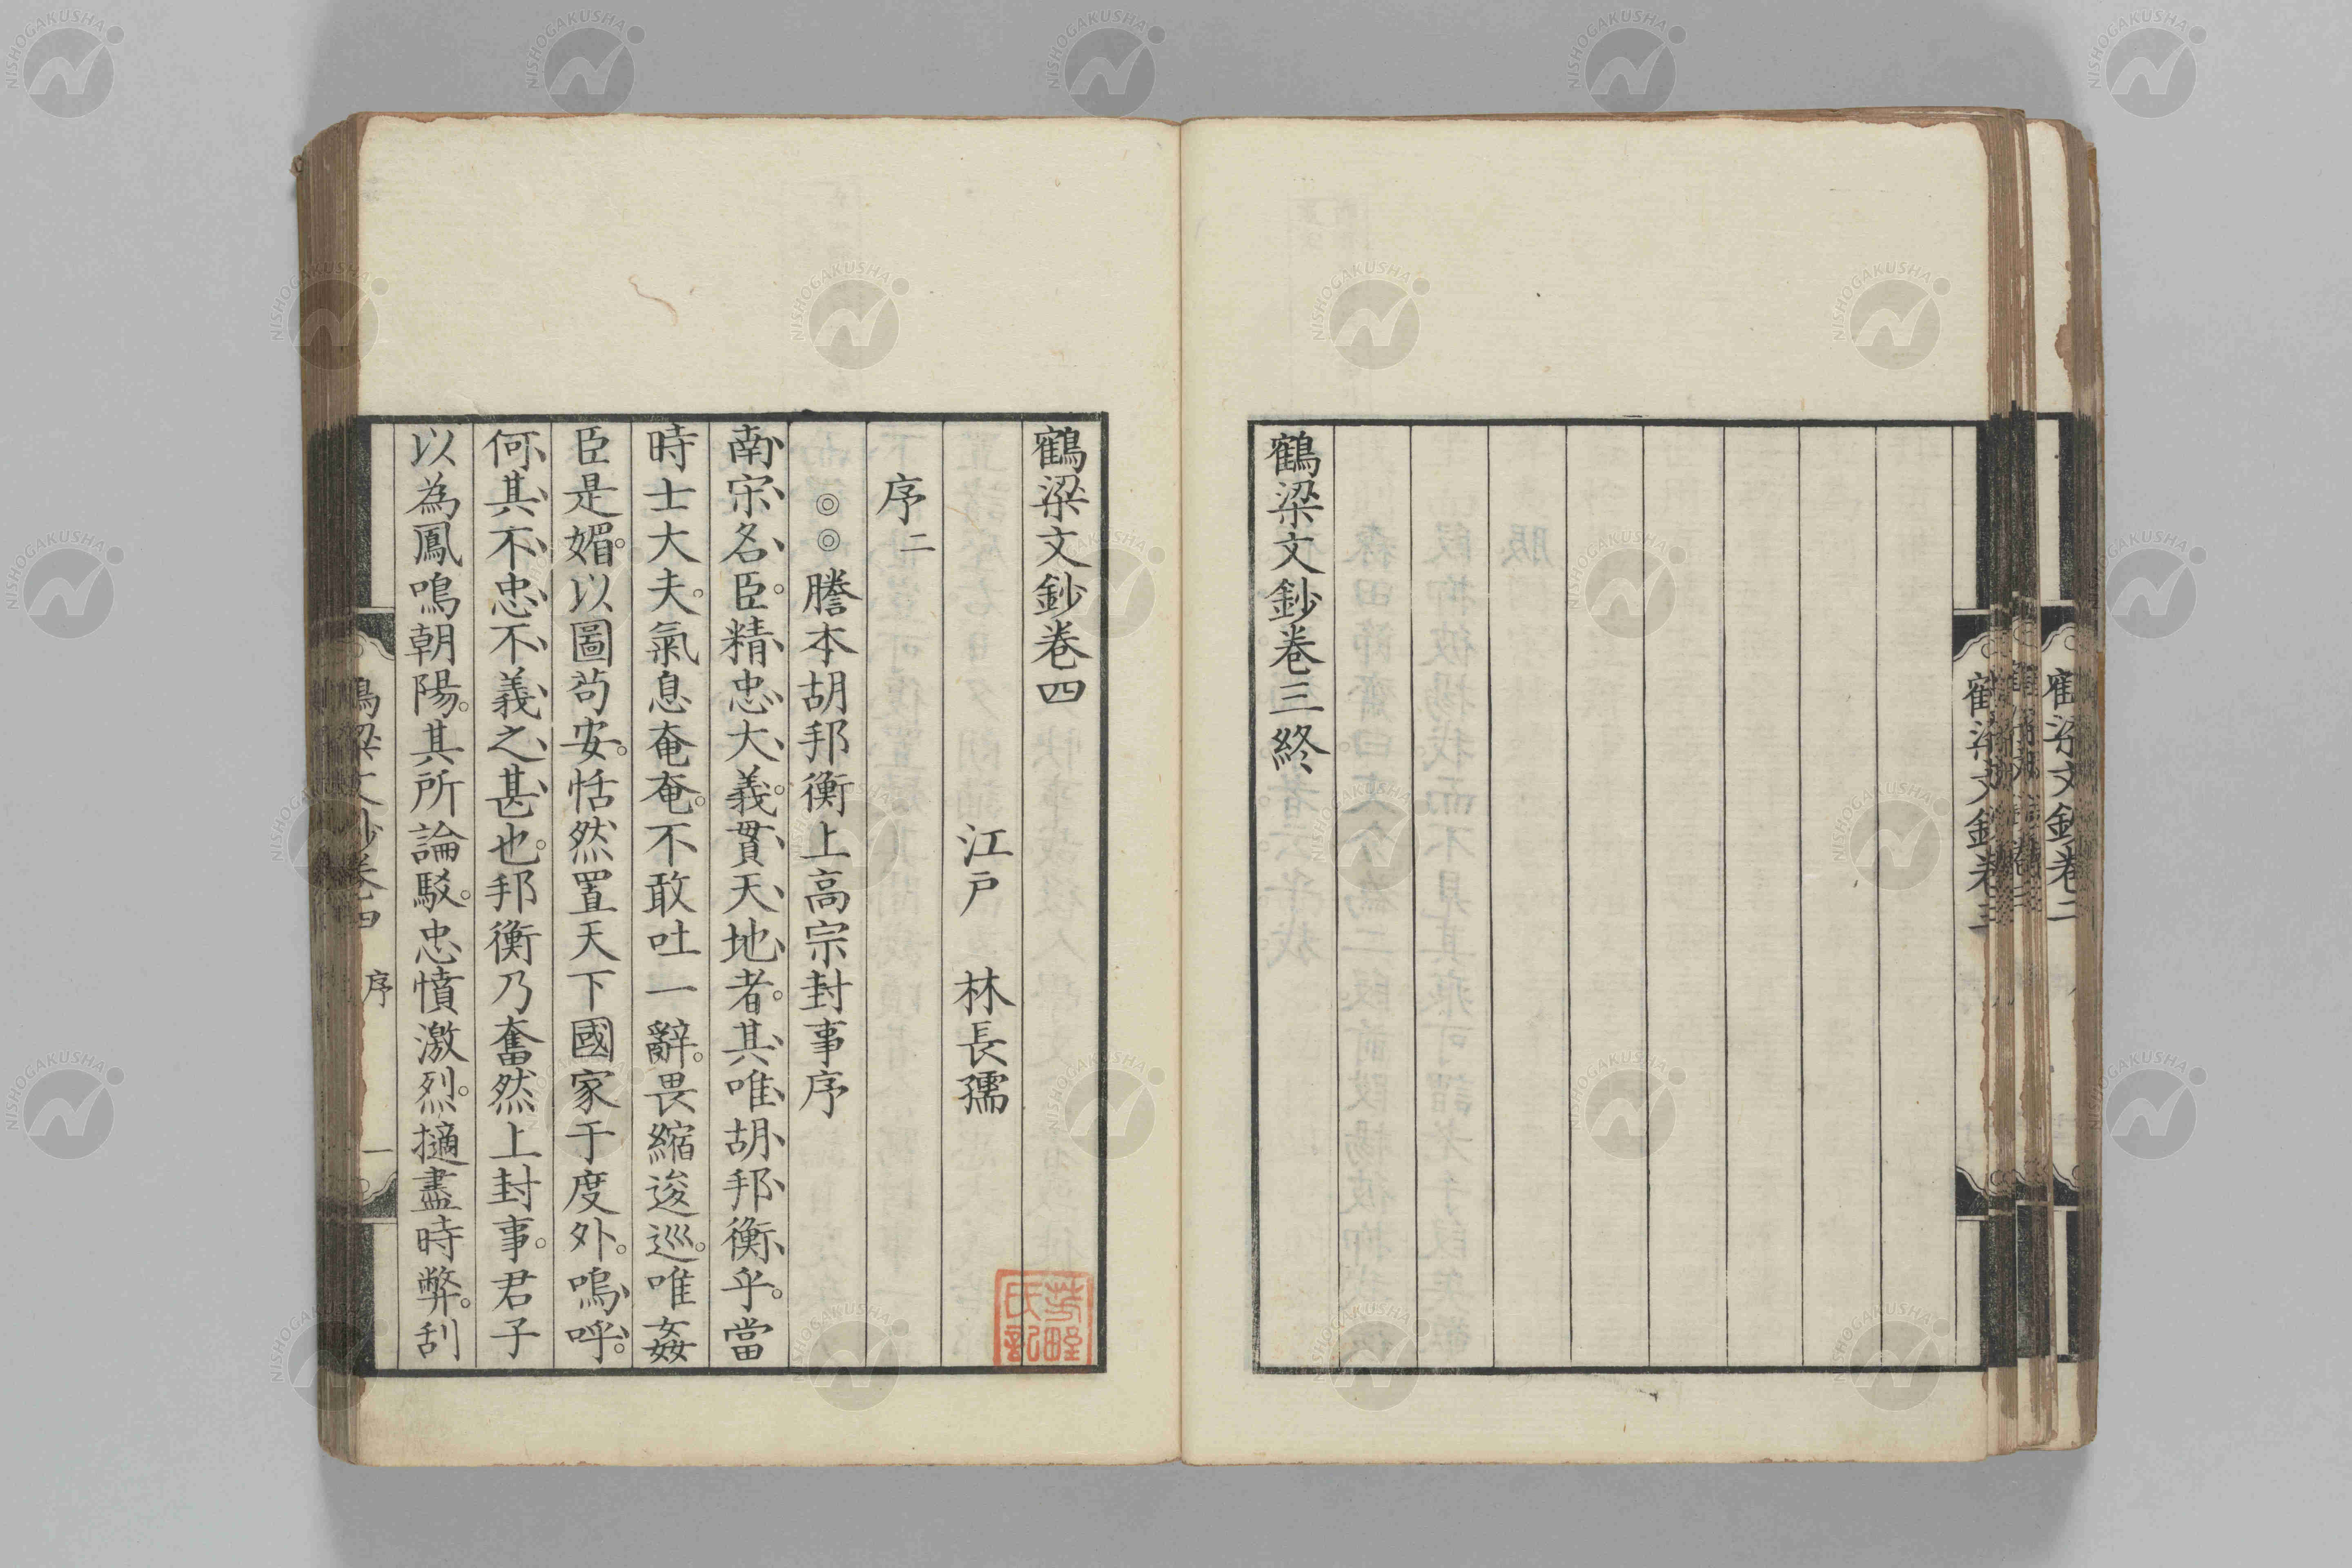 鶴梁文鈔巻三終
鶴梁文鈔巻四
江戸 林長孺
序二
◎◎謄本胡邦衡上高宗封事序
南宋名臣。精忠大義。貫天地者。其唯胡邦衡乎。當
時士大夫。氣息奄奄。不敢吐一辭。畏縮逡巡。唯姦
臣是媚。以圖苟安。恬然置天下國家于度外。嗚呼。
何其不忠不義之甚也。邦衡乃奮然上封事。君子
以為鳳鳴朝陽。其所論駁。忠憤激烈。擿盡時弊。刮
序
一
鶴梁文鈔巻三
鶴梁文鈔巻二
芳野氏記
NISHOGAKUSHA